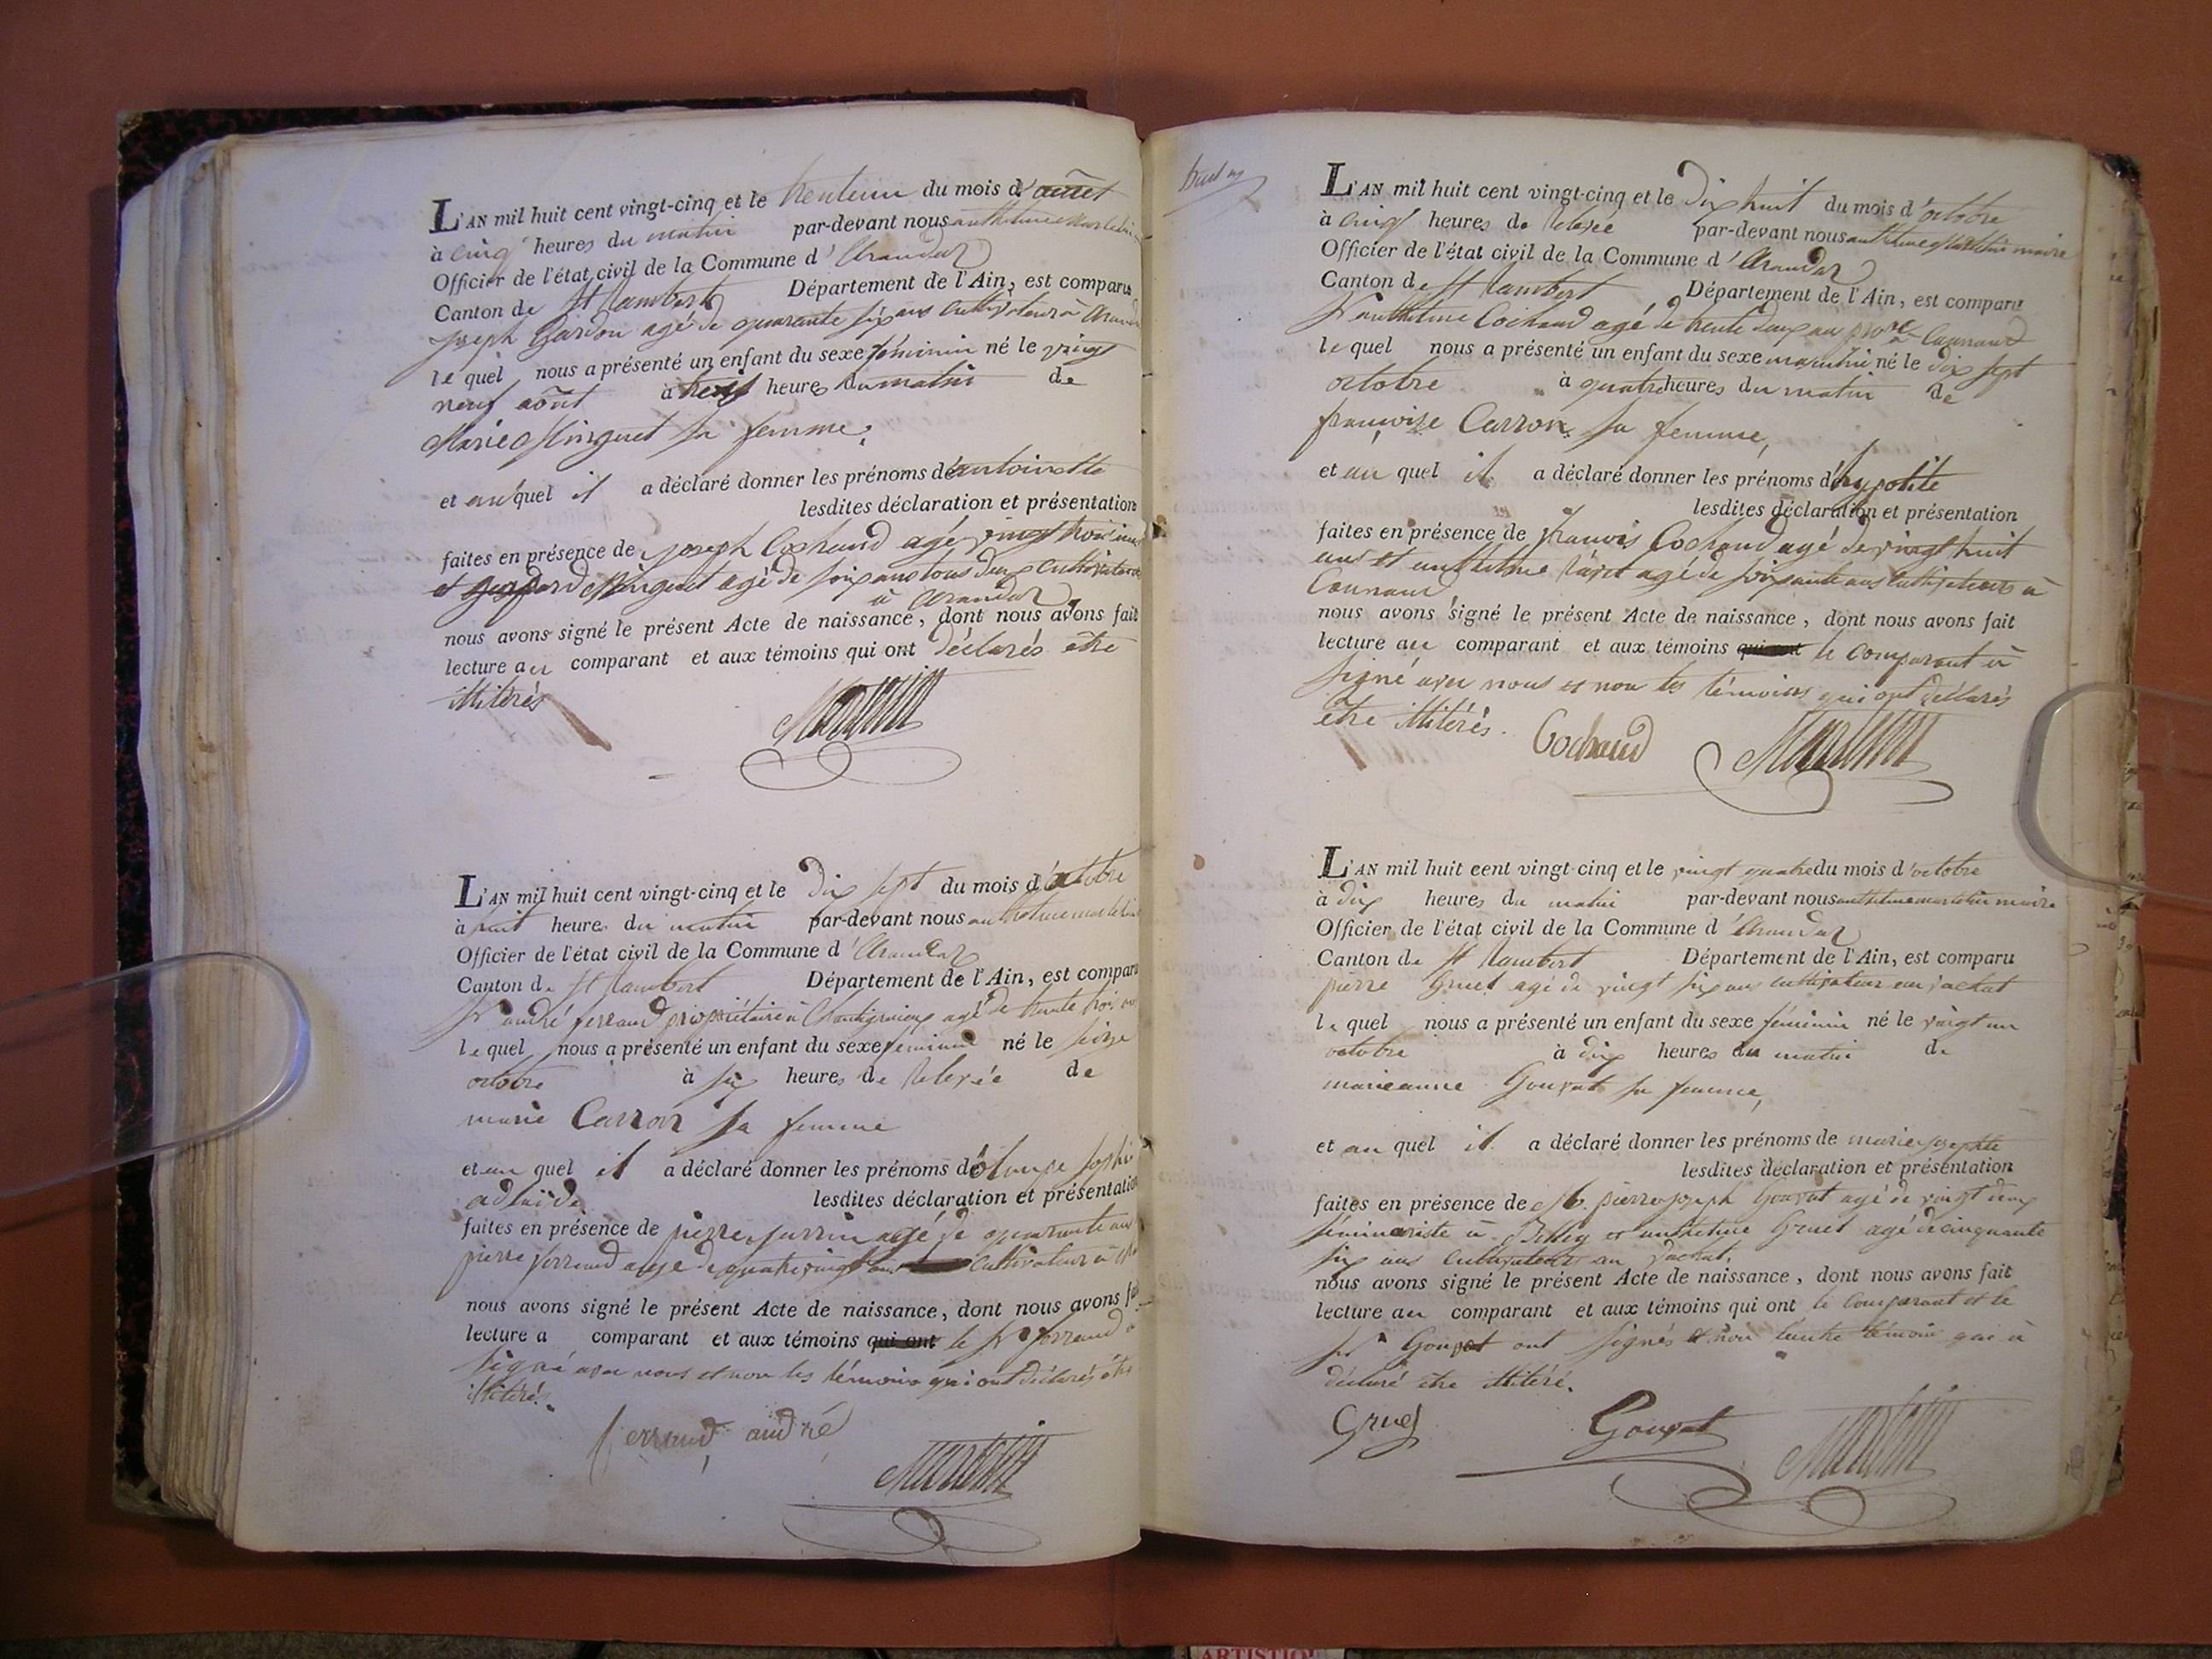 L'AN mil huit cent vingt-cinq et le trente un du mois d'août
à cinq heures du matin par-devant nous anthelme martelin
Officier de l'état civil de la Commune d'Arandas
Canton de St Rambert Département de l'Ain, est comparu
joseph Gardon agé de quarante six ans cultivateur à
le quel nous a présenté un enfant du sexe féminin né le vingt
neuf août à heures du matin de
Marie Minguet sa femme,
et au quel il a déclaré donner les prénoms d'antoinette
lesdites déclaration et présentation
faites en présence de joseph Cochaud agé vingt trois ans
et Minguet agé de ans tous deux cultivateurs
à Arandas
nous avons signé le présent Acte de naissance, dont nous avons fait
lecture au comparant et aux témoins qui ont déclarés être
illitérés
Martelin
L'AN mil huit cent vingt-cinq et le dix sept du mois d'octobre
à huit heures du matin par-devant nous anthelme martelin
Officier de l'état civil de la Commune d'Arandas
Canton de St Rambert Département de l'Ain, est comparu
Sr andré ferrand propriétaire à agé de trente trois ans
le quel nous a présenté un enfant du sexe féminin né le seize
octobre à six heures de relevée de
marie Carron sa femme
et au quel il a déclaré donner les prénoms d'olimpe sophie
adlaïde lesdites déclaration et présentation
faites en présence de pierre agé de quarante ans
pierre ferrand agé de quatrevingt ans cultivateur à
nous avons signé le présent Acte de naissance, dont nous avons fai
lecture a comparant et aux témoins qui ont le Sr ferrand a
signé avec nous et non les témoins qui ont déclarés être
illitérés.
ferrand andré
Martelin
L'AN mil huit cent vingt-cinq et le dix huit du mois d'octobre
à cinq heures de relevée par-devant nous anthelme martelin maire
Officier de l'état civil de la Commune d'Arandas
Canton de St Rambert Département de l'Ain, est comparu
Sr anthelme Cochaud agé de trente deux ans pro.re à
le quel nous a présenté un enfant du sexe masculin né le dix sept
octobre à quatre heures du matin de
françoise Carron sa femme,
et au quel il a déclaré donner les prénoms d'hypolite
lesdites déclaration et présentation
faites en présence de françois Cochaud agé de vingt huit
ans et anthelme agé de soixante ans cultivateurs à
nous avons signé le présent Acte de naissance, dont nous avons fait
lecture au comparant et aux témoins qui ont le comparant à
signé avec nous et non les témoins qui ont déclarés
etre illitérés.
Cochaud Martelin
L'AN mil huit cent vingt-cinq et le vingt quatre du mois d'octobre
à dix heures du matin par-devant nous anthelme martelin maire
Officier de l'état civil de la Commune d'Arandas
Canton de St Rambert Département de l'Ain, est comparu
pierre Gruel agé de vingt six ans cultivateur au
le quel nous a présenté un enfant du sexe féminin né le vingt un
octobre à dix heures du matin de
marieanne Gouvat sa femme,
et au quel il a déclaré donner les prénoms de marie josephte
lesdites déclaration et présentation
faites en présence de M. pierre joseph Gouvat agé de vingt deux
séminariste à Belley et anthelme Gruel agé de cinquante
six ans cultivateurs au
nous avons signé le présent Acte de naissance, dont nous avons fait
lecture au comparant et aux témoins qui ont le comparant et le
Sr Gouvat ont signés et non l'autre témoin qui à
déclaré etre illitéré.
Gruel Gouvat Martelin